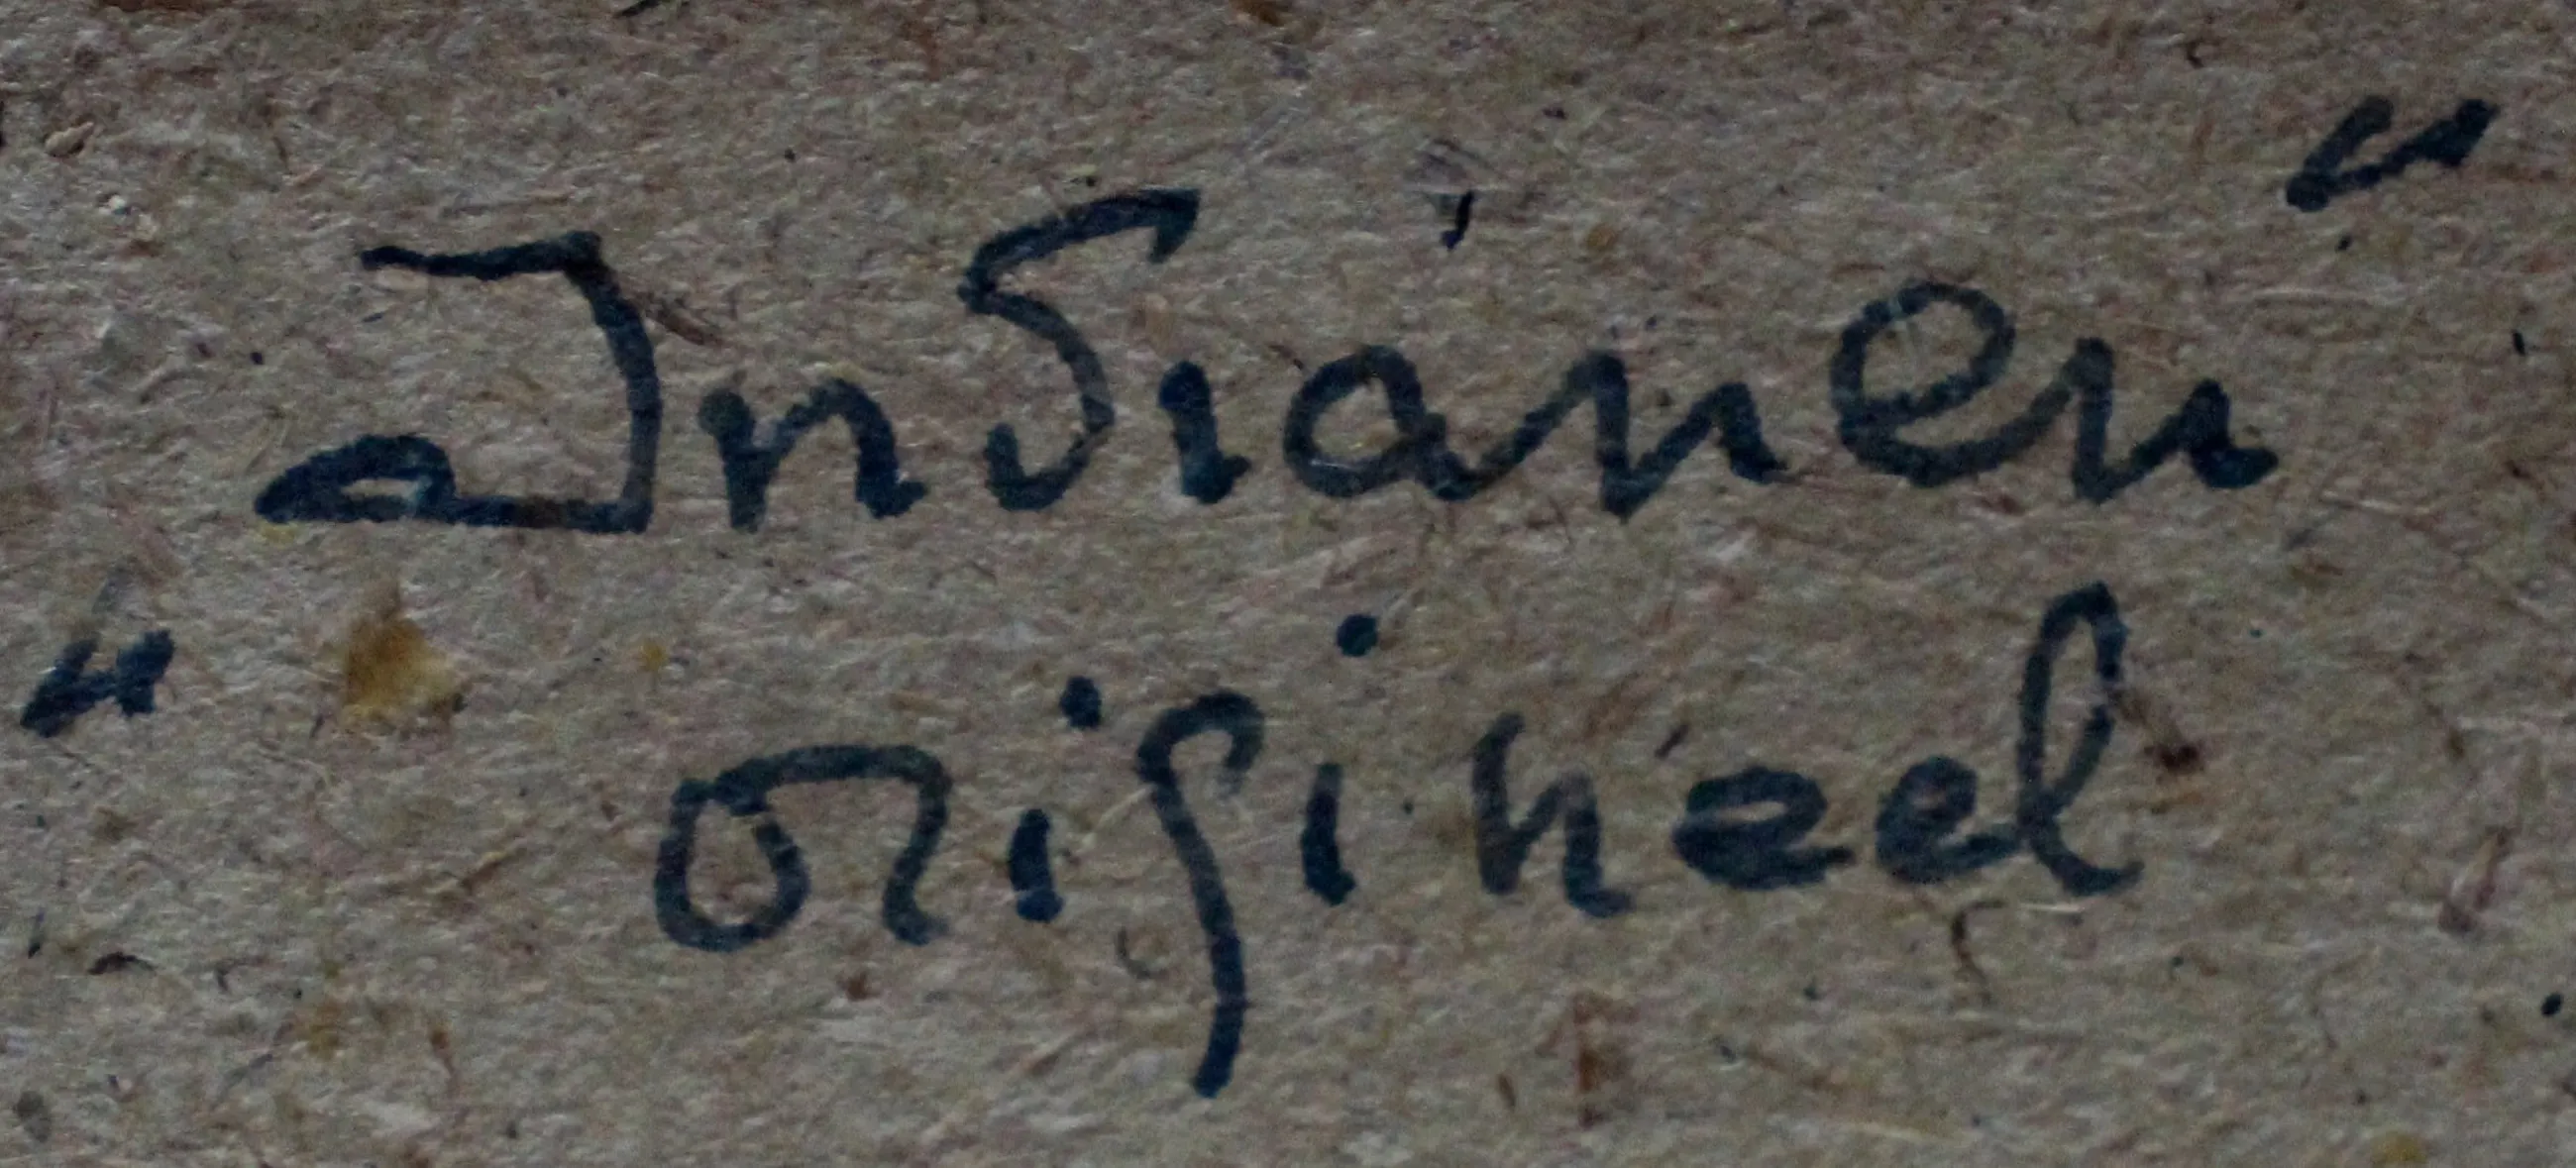 „Indianen“
origineel